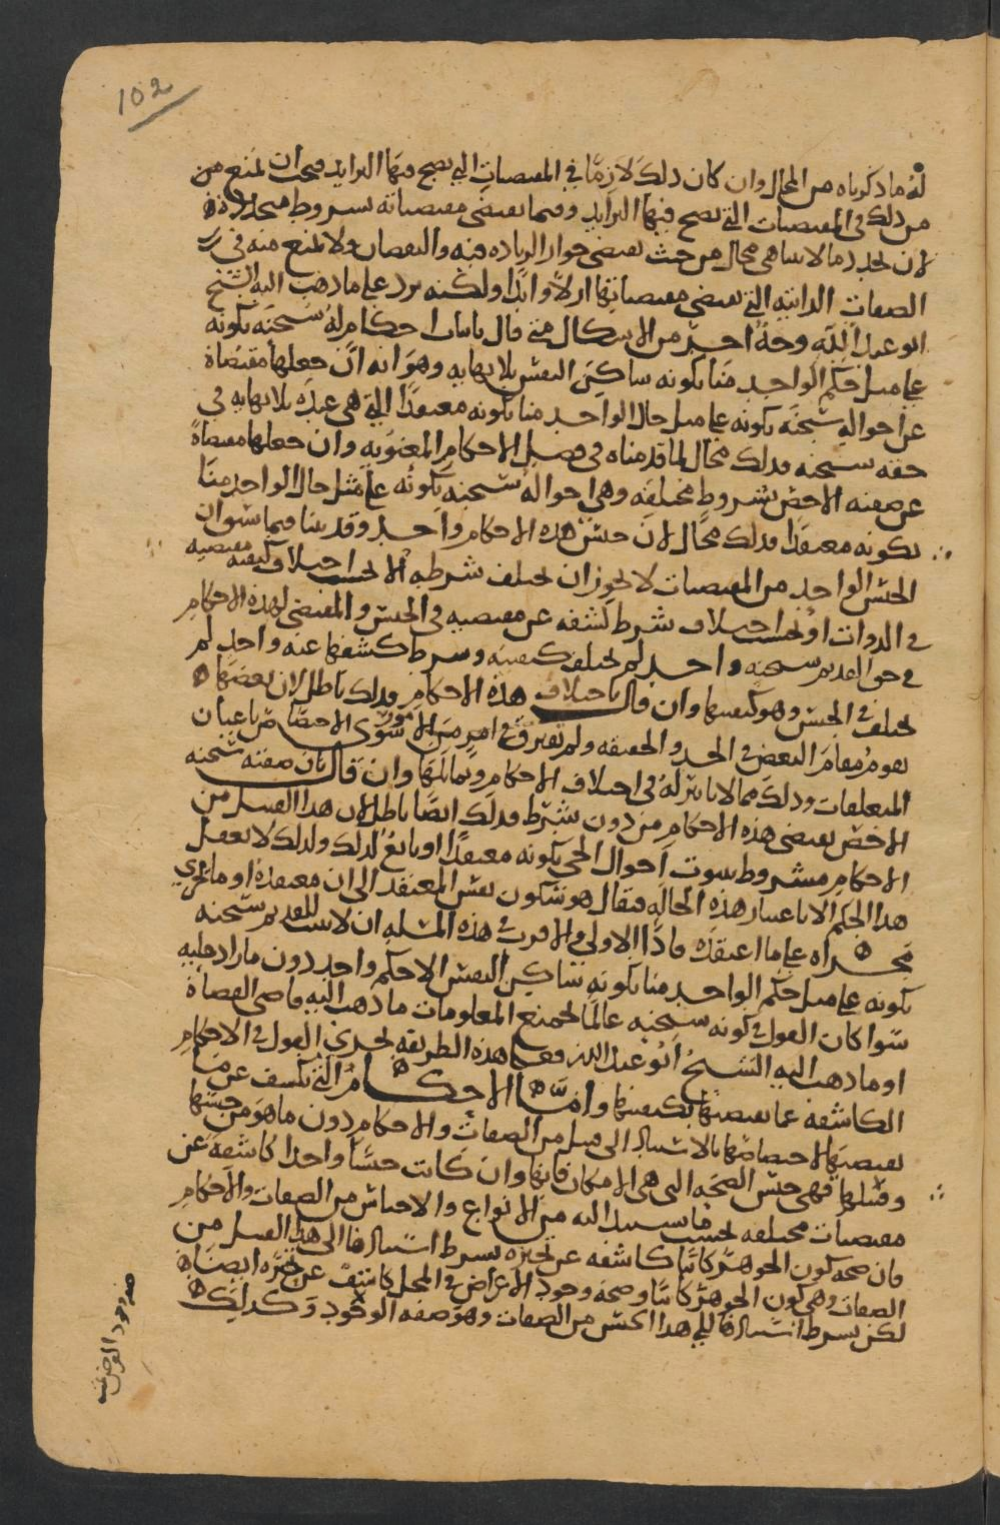 102
له ما ذكرناه من المحال وان كان ذلك لازما في المقتضيات التي يصح فيها التزايد فيجب ان نمنع من
من ذلك في المقتضيات التي يصح فيها التزايد وفيما يقتضي مقتضياته بشروط متجددة
لان تجدد ما لا يتناهى محال من حيث يقتضي جواز الزياده فيه والنقصان ولا نمنع منه في
الصفات الذاتيه التي يقتضي مقتضياتها ازلا وابدا ولكنه يرد على ما ذهب اليه الشيخ
ابو عبد الله وجه اخر من الاشكال متى قال باثبات احكام له سبحنه بكونه
على مثل حكم الواحد منا بكونه ساكن النفس بلا نهايه وهو انه ان جعلها مقتضاة
عن احواله سبحنه بكونه على مثل حال الواحد منا بكونه معتقدا التي هي عنده بلا نهايه في
حقه سبحنه فذلك محال لما قدمناه في فصل الاحكام المعنويه وان جعلها مقتضاة
عن صفته الاخص بشروط مختلفه وهي احواله سبحنه بكونه على مثل حال الواحد منا
بكونه معتقدا فذلك محال لان جنس هذه الاحكام واحد وقد بينا فيما سوى ان
الجنس الواحد من المقتضيات لا يجوز ان تختلف شرطه الا بحسب اختلاف كيفيه مقتضيه
في الذوات او بحسب اختلاف شرط كشفه عن مقتضيه في الجنس والمقتضي لهذه الاحكام
في حق القديم سبحنه واحد لم تختلف كيفيته وشرط كشفها عنه واحد لم
تختلف في الجنس وهو كيفيتها وان قال باختلاف هذه الاحكام فذلك باطل لان بعضها
يقوم مقام البعض في الحد والحقيقه ولم تفترق في امر من الامور سوى الاختصاص باعيان
المتعلقات وذلك مما لا تاثير له في اختلاف الاحكام وتماثلها وان قال بان صفته سبحنه
الاخص يقتضي هذه الاحكام من دون شرط فذلك ايضا باطل لان هذا القبيل من
الاحكام مشروط بثبوت احوال الحي بكونه معتقدا او تابع لذلك ولذلك لا يعقل
هذا الحكم الا باعتبار هذه الحاله فيقال هو سكون نفس المعتقد الى ان معتقده او ما يجري
مجراه على ما اعتقده فاذا الاولى والاقرب في هذه المسله ان لا يثبت للقديم سبحنه
بكونه على مثل حكم الواحد منا بكونه ساكن النفس الا حكم واحد دون ما زاد عليه
سوا كان القول في كونه سبحنه عالما لجميع المعلومات ما ذهب اليه قاضي القضاة
او ما ذهب اليه الشيخ ابو عبد الله فعلى هذه الطريقه يجري القول في الاحكام
الكاشفه عما يقتضيها بكيفيتها واما الاحكام التي تكشف عن ما
يقتضيها لاختصاصها بالاستناد الى قبيل من الصفات والاحكام دون ما هو من جنسها
وقبلها فهي جنس الصحه التي هي الامكان فانها وان كانت جنسا واحدا كاشفه عن
مقتضيات مختلفه بحسب ما يستند اليه من الانواع والاجناس من الصفات والاحكام
فان صحه كون الجوهر كائنا كاشفه عن تحيزه بشرط استنادها الى هذا القبيل من
الصفات وهي كون الجوهر كائنا وصحه وجود الاعراض في المحل كاشف عن تحيزه ايضا
لكن بشرط استنادها الى هذا الجنس من الصفات وهو صفه الوجود وكذلك